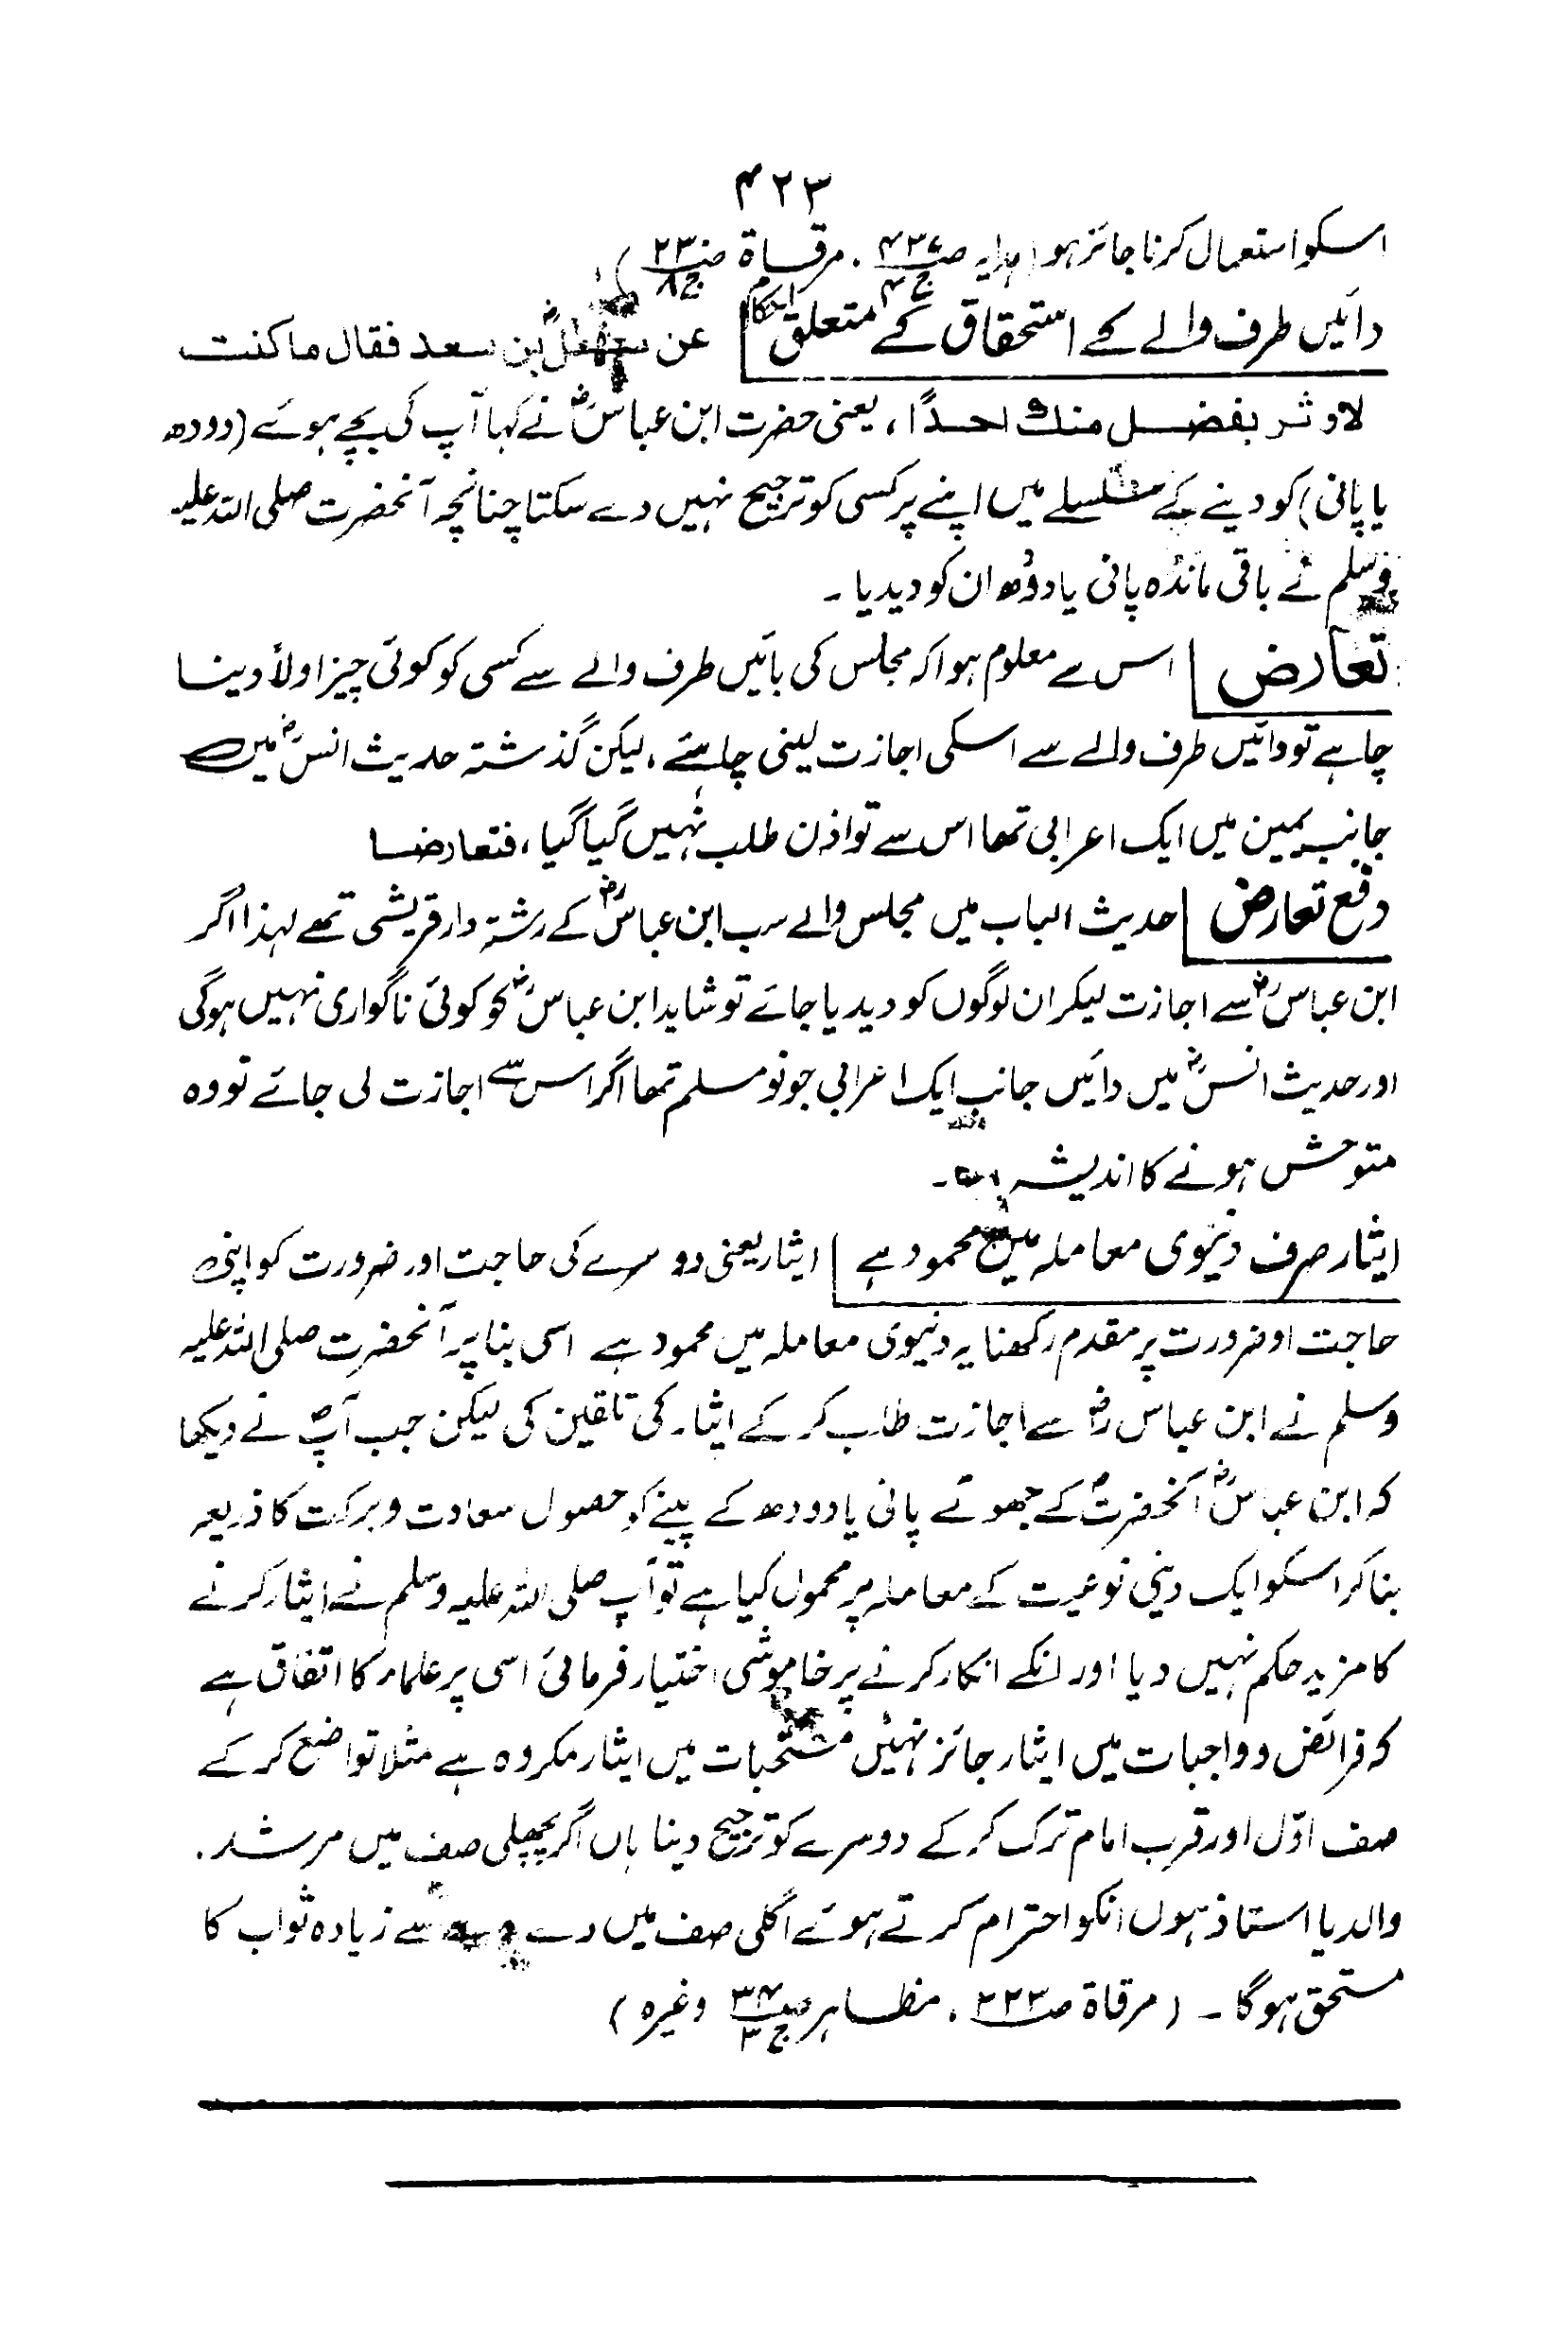 ۴۲۳
اسکو استعمال کرنا جائز ہو (ہدایہ ص۴۳۷ ج۴، مرقاۃ ص۲۳ ج۸)
دائیں طرف والے کے استحقاق کے متعلق احکام | عن سھلؓ بن سعد فقال ما کنت
لاوثر بفضل منك احدًا، یعنی حضرت ابن عباسؓ نے کہا آپ کی بچے ہوئے (دودھ
یا پانی) کو دینے کے سلسلے میں اپنے پر کسی کو ترجیح نہیں دے سکتا چنانچہ آنحضرت صلی اللہ علیہ
وسلم نے باقی ماندہ پانی یا دودھ ان کو دیدیا ۔
تعارض | اس سے معلوم ہوا کہ مجلس کی بائیں طرف والے سے کسی کو کوئی چیز اولاً دینا
چاہے تو دائیں طرف والے سے اسکی اجازت لینی چاہئے، لیکن گذشتہ حدیث انسؓ میں ہے
جانب یمین میں ایک اعرابی تھا اس سے تو اذن طلب نہیں گیا گیا، فتعارضا
دفع تعارض | حدیث الباب میں مجلس والے سب ابن عباسؓ کے رشتہ دار قریشی تھے لہذا اگر
ابن عباسؓ سے اجازت لیکر ان لوگوں کو دیدیا جائے تو شاید ابن عباسؓ کو کوئی ناگواری نہیں ہوگی
اور حدیث انسؓ میں دائیں جانب ایک اعرابی جو نو مسلم تھا اگر اس سے اجازت لی جائے تو وہ
متوحش ہونے کا اندیشہ ۔
ایثار صرف دنیوی معاملہ میں محمود ہے | ایثار یعنی دوسرے کی حاجت اور ضرورت کو اپنی
حاجت اور ضرورت پر مقدم رکھنا یہ دنیوی معاملہ میں محمود ہے اسی بنا پر آنحضرت صلی اللہ علیہ
وسلم نے ابن عباس رضؓ سے اجازت طلب کر کے ایثار کی تلقین کی لیکن جب آپؐ نے دیکھا
کہ ابن عباسؓ آنحضرتؐ کے جھوٹے پانی یا دودھ کے پینے کو حصول سعادت و برکت کا ذریعہ
بنا کر اسکو ایک دینی نوعیت کے معاملہ پر محمول کیا ہے تو آپ صلی اللہ علیہ وسلم نے ایثار کرنے
کا مزید حکم نہیں دیا اور انکے انکار کرنے پر خاموشی اختیار فرمائی اسی پر علماء کا اتفاق ہے
کہ فرائض و واجبات میں ایثار جائز نہیں مستحبات میں ایثار مکروہ ہے مثلا تواضع کر کے
صف اوّل اور قرب امام ترک کر کے دوسرے کو ترجیح دینا ہاں اگر پچھلی صف میں مرشد،
والد یا استاذ ہوں انکو احترام کرتے ہوئے اگلی صف میں دے سے زیادہ ثواب کا
مستحق ہوگا ۔ (مرقاۃ ص۲۲۳، مظاہر ص۳۴ ج۳ وغیرہ)